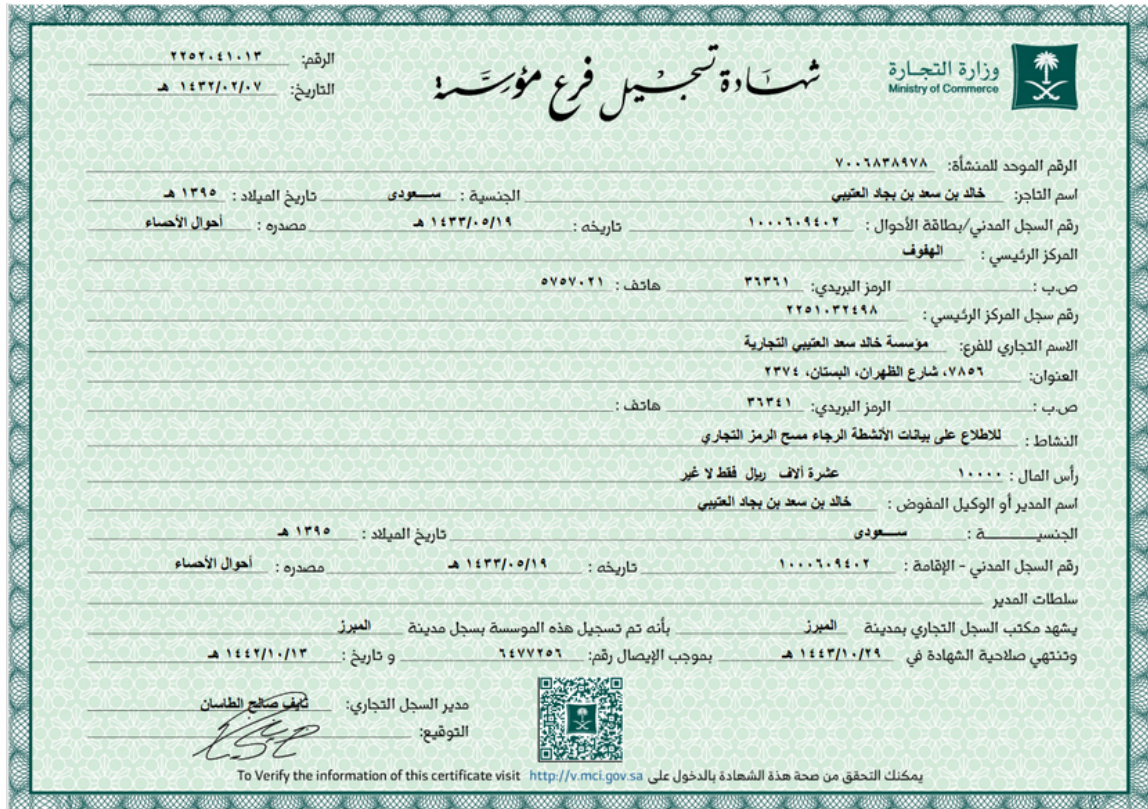 وزارة التجـارة
Ministry of Commerce
شهادة تسجيل فرع مؤسسة
الرقم: ٢٢٥٢٠٤١٠١٣
التاريخ: ١٤٣٢/٠٢/٠٧ هـ
الرقم الموحد للمنشأة: ٧٠٠٦٨٣٨٩٧٨
اسم التاجر: خالد بن سعد بن بجاد العتيبي الجنسية : ســعودى تاريخ الميلاد : ١٣٩٥ هـ
رقم السجل المدني/بطاقة الأحوال : ١٠٠٠٦٠٩٤٠٢ تاريخه : ١٤٣٣/٠٥/١٩ هـ مصدره : أحوال الأحساء
المركز الرئيسي : الهفوف
ص.ب : الرمز البريدي: ٣٦٣٦١ هاتف : ٥٧٥٧٠٢١
رقم سجل المركز الرئيسي : ٢٢٥١٠٣٢٤٩٨
الاسم التجاري للفرع: مؤسسة خالد سعد العتيبي التجارية
العنوان: ٧٨٥٦، شارع الظهران، البستان، ٢٣٧٤
ص.ب : الرمز البريدي: ٣٦٣٤١ هاتف :
النشاط : للاطلاع على بيانات الأنشطة الرجاء مسح الرمز التجاري
رأس المال : ١٠٠٠٠ عشرة آلاف ريال فقط لا غير
اسم المدير أو الوكيل المفوض : خالد بن سعد بن بجاد العتيبي
الجنسيــــــة : ســعودى تاريخ الميلاد : ١٣٩٥ هـ
رقم السجل المدني - الإقامة : ١٠٠٠٦٠٩٤٠٢ تاريخه : ١٤٣٣/٠٥/١٩ هـ مصدره : أحوال الأحساء
سلطات المدير
يشهد مكتب السجل التجاري بمدينة المبرز بأنه تم تسجيل هذه الموسسة بسجل مدينة المبرز
وتنتهي صلاحية الشهادة في ١٤٤٣/١٠/٢٩ هـ بموجب الإيصال رقم: ٦٤٧٧٢٥٦ و تاريخ : ١٤٤٢/١٠/١٣ هـ
مدير السجل التجاري: نايف صالح الطاسان
التوقيع:
يمكنك التحقق من صحة هذة الشهادة بالدخول على To Verify the information of this certificate visit http://v.mci.gov.sa